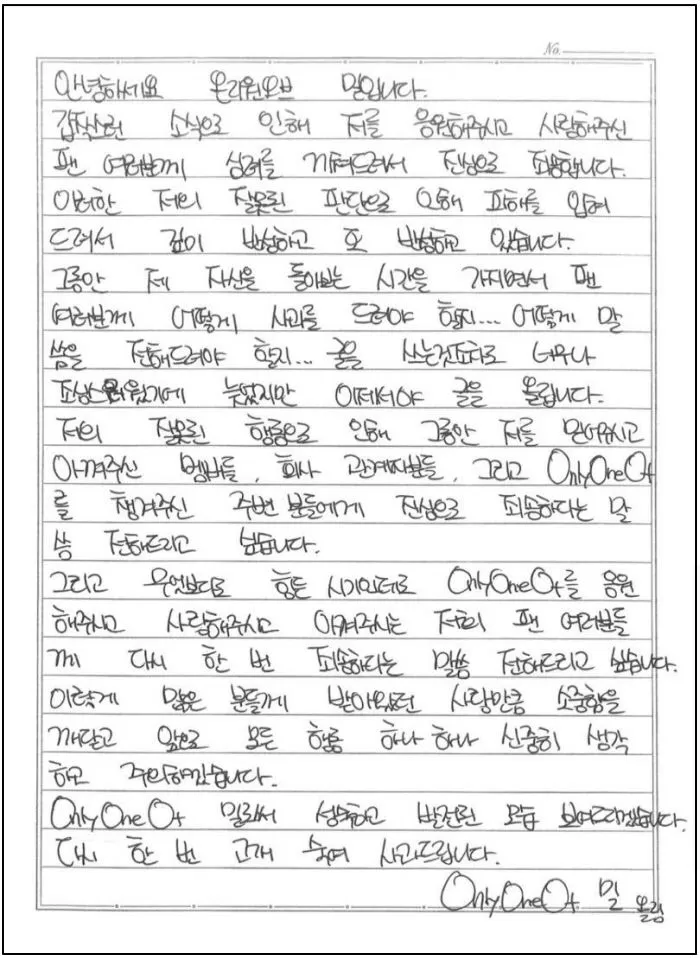 No.
안녕하세요 온리원오브 밀입니다.
갑작스런 소식으로 인해 저를 응원해주시고 사랑해주신
팬 여러분께 심려를 끼쳐드려서 진심으로 죄송합니다.
이러한 저의 잘못된 판단으로 인해 피해를 입혀
드려서 깊이 반성하고 또 반성하고 있습니다.
그동안 제 자신을 돌아보는 시간을 가지면서 팬
여러분께 어떻게 사과를 드려야 할지... 어떻게 말
씀을 전해드려야 할지... 글을 쓰는것조차로 너무나
조심스러웠기에 늦었지만 이제서야 글을 올립니다.
저의 잘못된 행동으로 인해 그동안 저를 믿어주시고
아껴주신 멤버들, 회사 관계자분들, 그리고 OnlyOneOf
를 챙겨주신 주변 분들에게 진심으로 죄송하다는 말
씀 전해드리고 싶습니다.
그리고 무엇보다도 힘든 시기인데도 OnlyOneOf를 응원
해주시고 사랑해주시고 아껴주시는 저희 팬 여러분들
께 다시 한 번 죄송하다는 말씀 전해드리고 싶습니다.
이렇게 많은 분들께 받아왔던 사랑만큼 소중함을
깨닫고 앞으로 모든 행동 하나 하나 신중히 생각
하고 주의하겠습니다.
OnlyOneOf 밀로써 성숙하고 발전된 모습 보여드리겠습니다.
다시 한 번 고개 숙여 사과드립니다.
OnlyOneOf 밀 올림